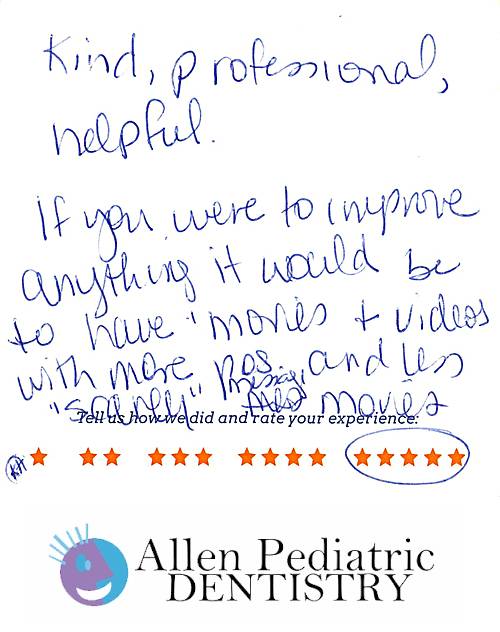 Kind, professional,
helpful.
If you were to improve
anything it would be
to have "movies + videos
with more pos. and less
messages
"scarey" movies
Tell us how we did and rate your experience:
KA
Allen Pediatric
DENTISTRY